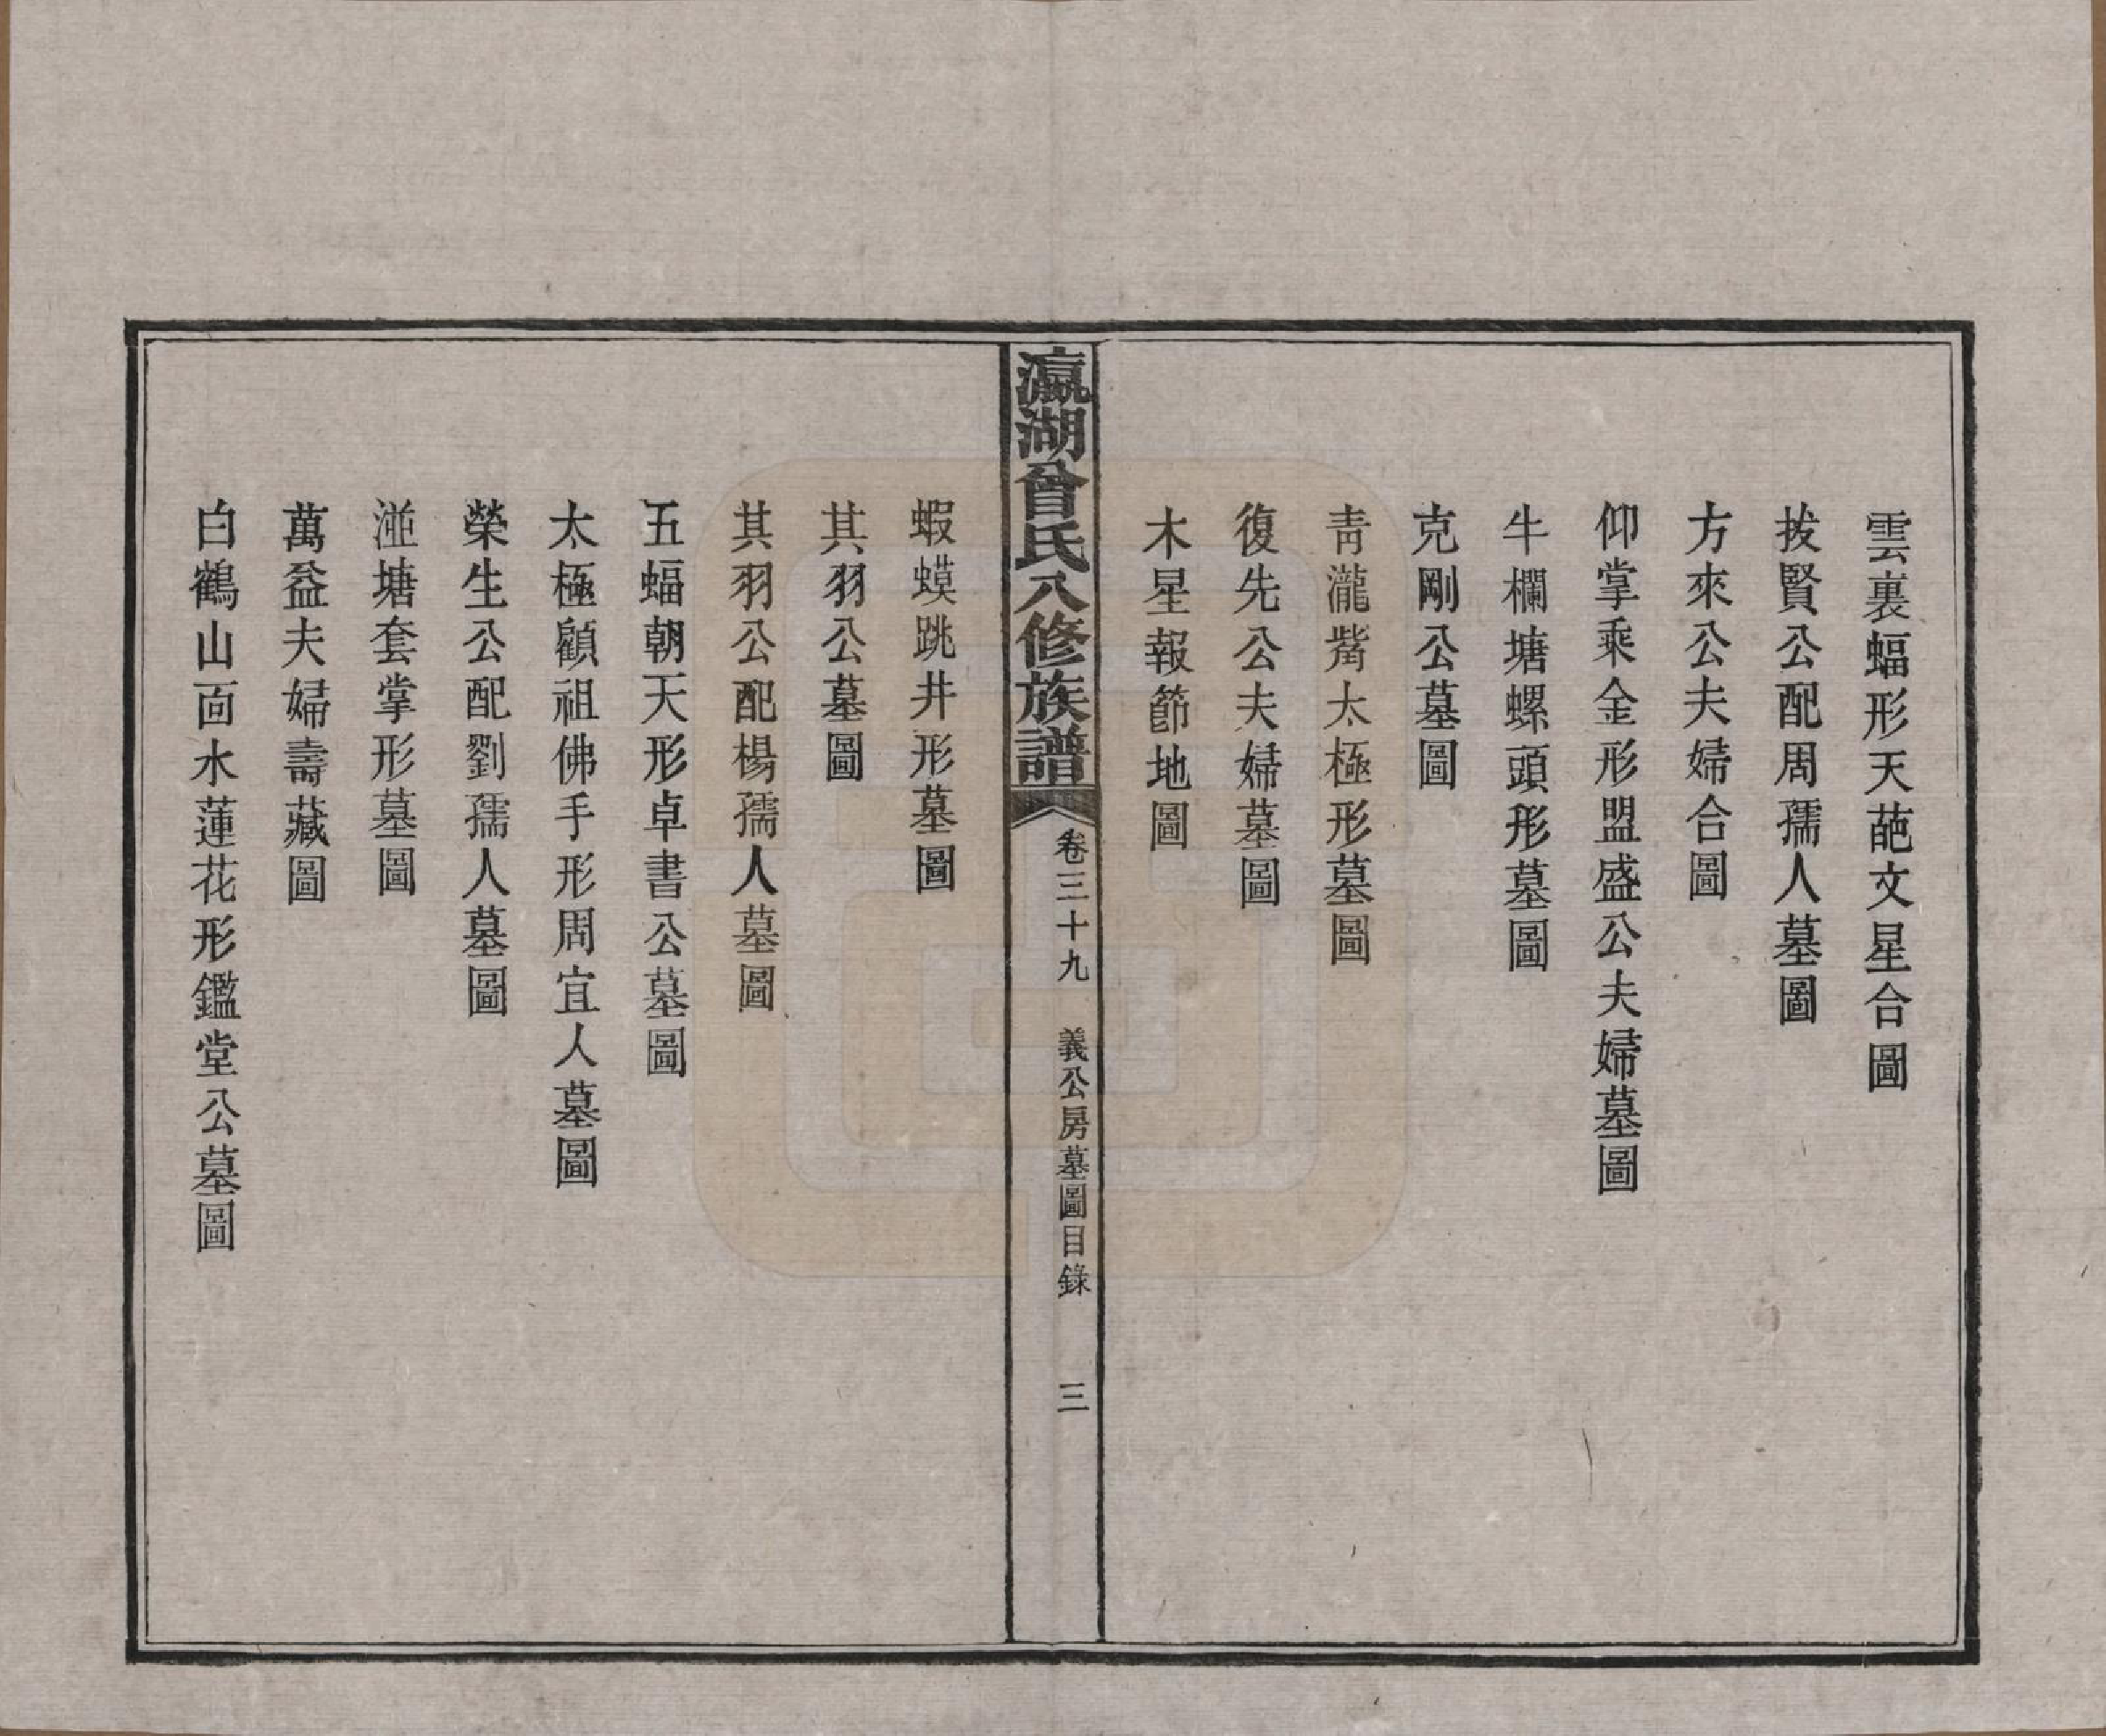 雲裏蝠形天葩文星合圖
拔賢公配周孺人墓圖
方來公夫婦合圖
仰掌乘金形盟盛公夫婦墓圖
牛欄塘螺頭形墓圖
克剛公墓圖
青瀧觜太極形墓圖
復先公夫婦墓圖
木星報節地圖
瀛湖曾氏八修族譜
卷三十九 義公房墓圖目錄 三
蝦蟆跳井形墓圖
其羽公墓圖
其羽公配楊孺人墓圖
五蝠朝天形卓書公墓圖
太極顧祖佛手形周宜人墓圖
榮生公配劉孺人墓圖
湴塘套掌形墓圖
萬益夫婦壽藏圖
白鶴山面水蓮花形鑑堂公墓圖